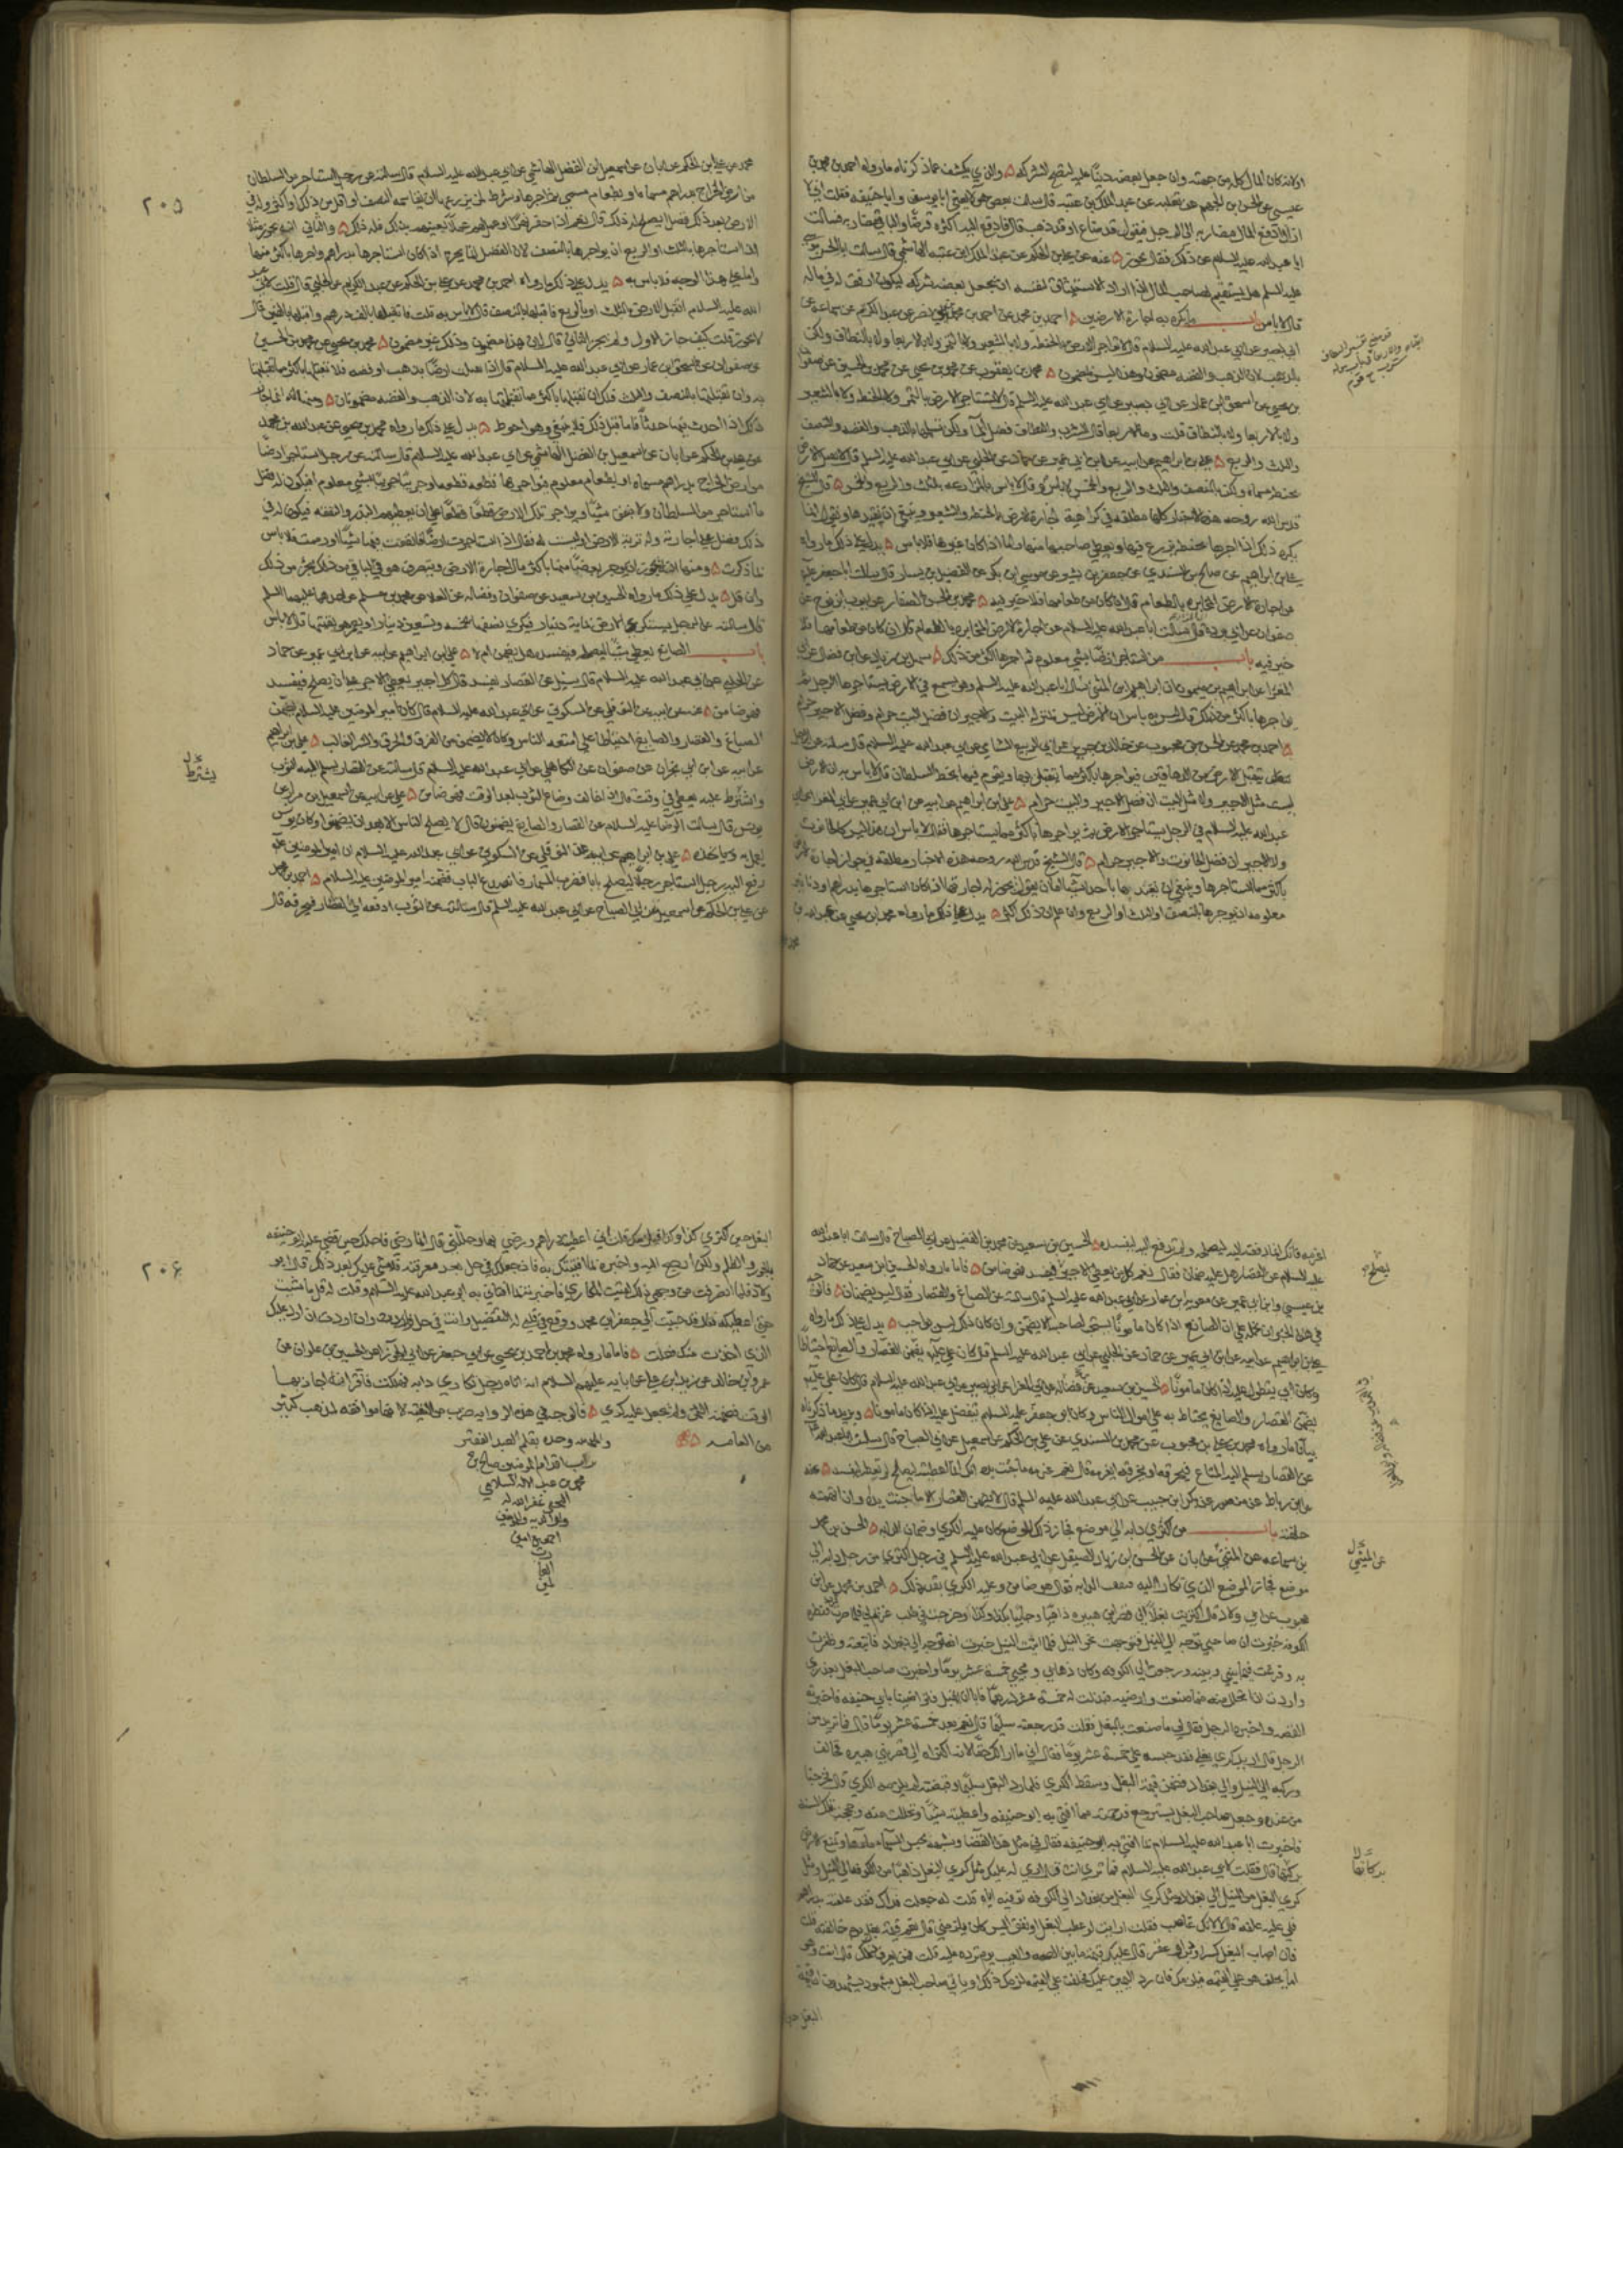 اولا ثم كان المال كله من جهته وان جعل بعضه دينا عليه لتصح الشركة والذي يكشف عما ذكرناه ما رواه احمد بن محمد بن
عيسى عن الحسن بن الجهم عن ثعلبه عن عبد الملك بن عتبه قال سالت بعض هؤلاء يعني ابا يوسف وابا حنيفه فقلت اني لا
ازال ادفع المال مضاربة الى الرجل فيقول قد ضاع او قد ذهب قال فادفع اليه اكثره قرضا والباقي مضاربه فسالت
ابا عبد الله عليه السلام عن ذلك فقال يجوز عنه عن علي بن الحكم عن عبد الملك بن عتبه الهاشمي قال سالت ابا الحسن موسى
عليه السلم هل يستقيم لصاحب المال اذا اراد الاستيثاق لنفسه ان يجعل بعضه شركه ليكون اوثق له في ماله
قال لا باس باب ما يكره به اجارة الارضين احمد بن محمد عن احمد بن محمد بن ابي نصر عن عبد الكريم عن سماعة عن
ابي بصير عن ابي عبد الله عليه السلام قال لا تواجر الارض بالحنطه ولا بالشعير ولا بالتمر ولا بالاربعا ولا بالنطاف ولكن
بالذهب والفضه لان الذهب والفضه مضمون وهذا ليس بمضمون محمد بن يعقوب عن محمد بن يحيى عن محمد بن الحسين عن صفوان
بن يحيى عن اسحق بن عمار عن ابي بصير عن ابي عبد الله عليه السلم قال لا تستاجر الارض بالتمر ولا بالحنطه ولا بالشعير
ولا بالاربعا ولا بالنطاف قلت وما الاربعا قال الشرب والنطاف فضل الما ولكن تقبلها بالذهب والفضه والنصف
والثلث والربع علي بن ابراهيم عن ابيه عن ابن ابي عمير عن حماد عن الحلبي عن ابي عبد الله عليه السلم قال لا تقبل الارض
بحنطه مسماه ولكن بالنصف والثلث والربع والخمس لا باس به وقال لا باس بالمزارعه بالثلث والربع والخمس قال الشيخ
قدس الله روحه هذه الاخبار كلها مطلقه في كراهية اجارة الارض بالحنطه والشعير وينبغي ان نقيدها ونقول انما
يكره ذلك اذا اجرها بحنطه يزرع فيها ويعطي صاحبها منها واما اذا كان من غيرها فلا باس يدل على ذلك ما رواه
علي بن ابراهيم عن صالح بن السندي عن جعفر بن بشير عن موسى بن بكر عن الفضيل بن يسار قال سالت ابا جعفر عليه
عن اجارة الارض المخابره بالطعام قال ان كان من طعامها فلا خير فيه محمد بن الحسن الصفار عن ايوب بن نوح عن
صفوان عن ابي برده قال سالت ابا عبد الله عليه السلام عن اجارة الارض المخابره بالطعام قال ان كان من طعامها فلا
خير فيه باب من استاجر ارضا بشي معلوم ثم اجرها باكثر من ذلك سهل بن زياد عن ابن فضال عن ابي
المغرا عن ابراهيم بن ميمون ان ابراهيم بن المثنى سال ابا عبد الله عليه السلم وهو يسمع عن الارض يستاجرها الرجل ثم
يواجرها باكثر من ذلك قال ليس به باس ان الارض ليس بمنزلة البيت والاجير ان فضل البيت حرام وفضل الاجير حرام
احمد بن محمد عن الحسن بن محبوب عن خالد بن جرير عن ابي الربيع الشامي عن ابي عبد الله عليه السلام قال سالته عن الرجل
يتقبل الارض من الدهاقين فيواجرها باكثر مما يتقبل بها ويقوم فيها بحظ السلطان قال لا باس به ان الارض
ليست مثل الاجير ولا مثل البيت ان فضل الاجير والبيت حرام علي بن ابراهيم عن ابيه عن ابن ابي عمير عن ابي المغرا عن ابي
عبد الله عليه السلام في الرجل يستاجر الارض ثم يواجرها باكثر مما يستاجرها فقال لا باس ان هذا ليس كالحانوت
ولا الاجير ان فضل الحانوت والاجير حرام قال الشيخ قدس الله روحه هذه الاخبار مطلقه في جواز اجارة الارض
باكثر مما استاجرها وينبغي ان نقيدها باحد اشيا اما ان نقول يجوز له اجارتها اذا كان استاجرها بدراهم ودنانير
معلومه ان يوجرها بالنصف او الثلث او الربع وان علم ان ذلك اكثر يدل على ذلك ما رواه محمد بن يحيى عن عبد الله بن
محمد
محمد عن علي بن الحكم عن ابان عن اسمعيل بن الفضل الهاشمي عن ابي عبد الله عليه السلام قال سالته عن رجل استاجر من السلطان
من ارض الخراج بدراهم مسماه او بطعام مسمى ثم اجرها وشرط لمن يزرعها ان يقاسمه النصف او اقل من ذلك او اكثر وله في
الارض بعد ذلك فضل ايصلح له ذلك قال نعم اذا حفر نهرا او عمل لهم عملا يعينهم بذلك فله ذلك والثاني انه يجوز مثلا
اذا استاجرها بالثلث او الربع ان يواجرها بالنصف لان الفضل انما يحرم اذا كان استاجرها بدراهم واجرها باكثر منها
واما على هذا الوجه فلا باس به يدل على ذلك ما رواه احمد بن محمد عن علي بن الحكم عن عبد الكريم عن الحلبي قال قلت لابي عبد
الله عليه السلام اتقبل الارض بالثلث او بالربع فاقبلها بالنصف قال لا باس به قلت فاتقبلها بالف درهم واقبلها بالفين قال
لا يجوز قلت كيف جاز الاول ولم يجز الثاني قال لان هذا مضمون وذلك غير مضمون محمد بن يحيى عن محمد بن الحسين
عن صفوان عن اسحق بن عمار عن ابي عبد الله عليه السلام قال اذا تقبلت ارضا بذهب او فضه فلا تقبلها باكثر ما تقبلتها
به وان تقبلتها بالنصف والثلث فلك ان تقبلها باكثر ما تقبلتها به لان الذهب والفضه مضمونان ومنها انه انما يجوز
ذلك اذا احدث فيها حدثا فاما قبل ذلك فلا ينبغي وهو احوط يدل على ذلك ما رواه محمد بن يحيى عن عبد الله بن محمد
عن علي بن الحكم عن ابان عن اسمعيل بن الفضل الهاشمي عن ابي عبد الله عليه السلام قال سالته عن رجل استاجر ارضا
من ارض الخراج بدراهم مسماه او بطعام معلوم فيواجرها قطعه قطعه او جريبا جريبا بشي معلوم افيكون له فضل
ما استاجر من السلطان ولا ينفق شيئا او يواجر تلك الارض قطعا قطعا على ان يعطيهم البذر والنفقه فيكون له في
ذلك فضل على اجارته وله تربة الارض او ليست له فقال اذا استاجرت ارضا فانفقت فيها شيئا او رممت فلا باس
بما ذكرت ومنها انه يجوز ان يوجر بعضها منها باكثر مال اجارة الارض ويتصرف هو في الباقي من ذلك بجزء من ذلك
وان قل يدل على ذلك ما رواه الحسين بن سعيد عن صفوان وفضاله عن العلا عن محمد بن مسلم عن احدهما عليهما السلم
قال سالته عن الرجل يستكري الارض بماية دينار فيكري نصفها بخمسه وتسعين دينارا ويعمر هو بقيتها قال لا باس
باب الصانع يعطى شيئا ليصلحه فيفسده هل يضمن ام لا علي بن ابراهيم عن ابيه عن ابن ابي عمير عن حماد
عن الحلبي عن ابي عبد الله عليه السلام قال سئل عن القصار يفسد قال كل اجير يعطي الاجر على ان يصلح فيفسد
فهو ضامن عنه عن ابيه عن النوفلي عن السكوني عن ابي عبد الله عليه السلام قال كان امير المومنين عليه السلام يضمن
الصباغ والقصار والصايغ احتياطا على امتعه الناس وكان لا يضمن من الغرق والحرق والشي الغالب علي بن ابراهيم
عن ابيه عن ابن ابي نجران عن صفوان عن الكاهلي عن ابي عبد الله عليه السلام قال سالته عن القصار يسلم اليه الثوب
واشترط عليه يعطي في وقت قال اذا خالف وضاع الثوب بعد الوقت فهو ضامن علي عن ابيه عن اسمعيل بن مرار عن
يونس قال سالت الرضا عليه السلام عن القصار والصايغ يضمنون قال لا يصلح الناس الا بعد ان يضمنوا وكان يونس
يعمل به وياخذه علي بن ابراهيم عن ابيه عن النوفلي عن السكوني عن ابي عبد الله عليه السلام ان امير المومنين عليه
رفع اليه رجل استاجر رجلا ليصلح بابا فضرب المسمار فانصدع الباب فضمنه امير المومنين عليه السلام احمد بن محمد
عن علي بن الحكم عن اسمعيل عن ابي الصباح عن ابي عبد الله عليه السلام قال سالته عن الثوب ادفعه الى القصار فيحرقه قال
٢٠٥
يشترط
اغرمه فانك انما دفعته اليه ليصلحه ولم تدفع اليه ليفسده الحسين بن سعيد عن محمد بن الفضيل عن ابي الصباح قال سالت ابا عبد الله
عليه السلام عن القصار هل عليه ضمان فقال نعم كل من يعطى الاجر ليصلح فيفسد فهو ضامن فاما ما رواه الحسين بن سعيد عن حماد
بن عيسى وابن ابي عمير عن معويه بن عمار عن ابي عبد الله عليه السلام قال سالته عن الصباغ والقصار فقال ليس يضمنان فالوجه
في هذا الخبر ان نحمله على ان الصانع اذا كان مامونا يستحب لصاحبه الا يضمن وان كان ذلك ليس بواجب يدل على ذلك ما رواه
علي بن ابراهيم عن ابيه عن ابن ابي عمير عن حماد عن الحلبي عن ابي عبد الله عليه السلم قال كان علي عليه يضمن القصار والصايغ احتياطا
وكان ابي يتطول عليه اذا كان مامونا الحسين بن سعيد عن فضاله عن ابي المغرا عن ابي بصير عن ابي عبد الله عليه السلام قال كان علي عليه
يضمن القصار والصايغ يحتاط به على اموال الناس وكان ابو جعفر عليه السلام يتفضل عليه اذا كان مامونا ويزيد ما ذكرناه
بيانا ما رواه محمد بن علي بن محبوب عن محمد بن السندي عن علي بن الحكم عن اسمعيل عن ابي الصباح قال سالت ابا عبد الله
عن القصار يسلم اليه المتاع فيحرقه او يخرقه ايغرمه قال نعم غرمه ما جنت يده انك انما اعطيته ليصلح لم تعطه ليفسد عنه
عن ابن رباط عن منصور عن بكر بن حبيب عن ابي عبد الله عليه السلم قال لا تضمن القصار الا ما جنت يده وان اتهمته
حلفته باب من اكترى دابه الى موضع فجاز ذلك الموضع كان عليه الكري وضمان الدابه الحسن بن محمد
بن سماعه عن الميثمي عن ابان عن الحسن بن زياد الصيقل عن ابي عبد الله عليه السلم في رجل اكترى من رجل دابه الى
موضع فجاز الموضع الذي تكارى اليه فنفقت الدابه فقال هو ضامن وعليه الكري بقدر ذلك احمد بن محمد عن ابن
محبوب عن ابي ولاد قال اكتريت بغلا الى قصر ابن هبيره ذاهبا وجائيا بكذا وكذا وخرجت في طلب غريم لي فلما صرت قرب قنطره
الكوفه خبرت ان صاحبي توجه الى النيل فتوجهت نحو النيل فلما اتيت النيل خبرت انه توجه الى بغداد فاتبعته وظفرت
به وفرغت فيما بيني وبينه ورجعت الى الكوفه وكان ذهابي ومجيئي خمسة عشر يوما واخبرت صاحب البغل بعذري
واردت ان اتحلل منه فيما صنعت وارضيه فبذلت له خمسة عشر درهما فابى ان يقبل فتراضينا بابي حنيفه فاخبرته
القصه واخبره الرجل فقال لي ما صنعت بالبغل فقلت قد رجعته سليما قال نعم بعد خمسة عشر يوما قال فما تريد من
الرجل قال اريد كري بغلي فقد حبسه علي خمسة عشر يوما فقال اني ما ارى لك حقا لانه اكتراه الى قصر بني هبيره فخالف
وركبه الى النيل والى بغداد فضمن قيمة البغل وسقط الكري فلما رد البغل سليما وقبضته لم يلزمه الكري قال فخرجنا
من عنده وجعل صاحب البغل يسترجع فرحمته مما افتى به ابو حنيفه واعطيته شيئا وتحللت منه وحججت تلك السنة
فاخبرت ابا عبد الله عليه السلام بما افتى به ابو حنيفه فقال في مثل هذا القضا وشبهه تحبس السماء ماءها وتمنع الارض
بركتها قال فقلت لابي عبد الله عليه السلام فما ترى انت قال ارى له عليك مثل كري البغل ذاهبا من الكوفه الى النيل ومثل
كري البغل من النيل الى بغداد ومثل كري البغل من بغداد الى الكوفه توفيه اياه قلت له جعلت فداك فقد علفته بدراهم
فلي عليه علفه قال لا لانك غاصب فقلت ارايت لو عطب البغل او نفق اليس كان يلزمني قال نعم قيمة بغل يوم خالفته قلت
فان اصاب البغل كسر او دبر او عقر قال عليك قيمة ما بين الصحه والعيب يوم ترده عليه قلت فمن يعرف ذلك قال انت وهو
اما يحلف هو على القيمه فيلزمك فان رد اليمين عليك فحلفت على القيمه لزمك ذلك او ياتي صاحب البغل بشهود يشهدون ان قيمة
البغل حين
يصلح
عن الميثمي
بركاتها
البغل حين اكترى كذا وكذا فيلزمك قلت اني اعطيته دراهم ورضي بها وحللني قال انما رضي فاحلك حين قضى عليه ابو حنيفه
بالجور والظلم ولكن ارجع اليه واخبره بما افتيتك به فان جعلك في حل بعد معرفته فلا شي عليك بعد ذلك قال ابو
ولاد فلما انصرفت من وجهي ذلك لقيت المكاري فاخبرته بما افتاني به ابو عبد الله عليه السلام وقلت له قل ما شئت
حتى اعطيكه فقال قد حببت الي جعفر بن محمد ووقع في قلبي له التفضيل وانت في حل وان اردت ان ارد عليك
الذي اخذت منك فعلت فاما ما رواه محمد بن احمد بن يحيى عن ابي جعفر عن ابي الجوزا عن الحسين بن علوان عن
عمرو بن خالد عن زيد بن علي عن ابايه عليهم السلام انه اتاه رجل تكارى دابه فهلكت فاقر انه جاز بها
الوقت فضمنه الثمن ولم يجعل عليه كري فالوجه في هذه الروايه ضرب من التقيه لانها موافقه لمذهب كثير
من العامه والحمد لله وحده بقلم العبد المفتقر
تراب اقدام المومنين صالح بن
محمد بن عبد الاله السلامي
غفر الله له
ولوالديه وللمومنين
اجمعين امين
رب
العا
لمين
٢٠٦